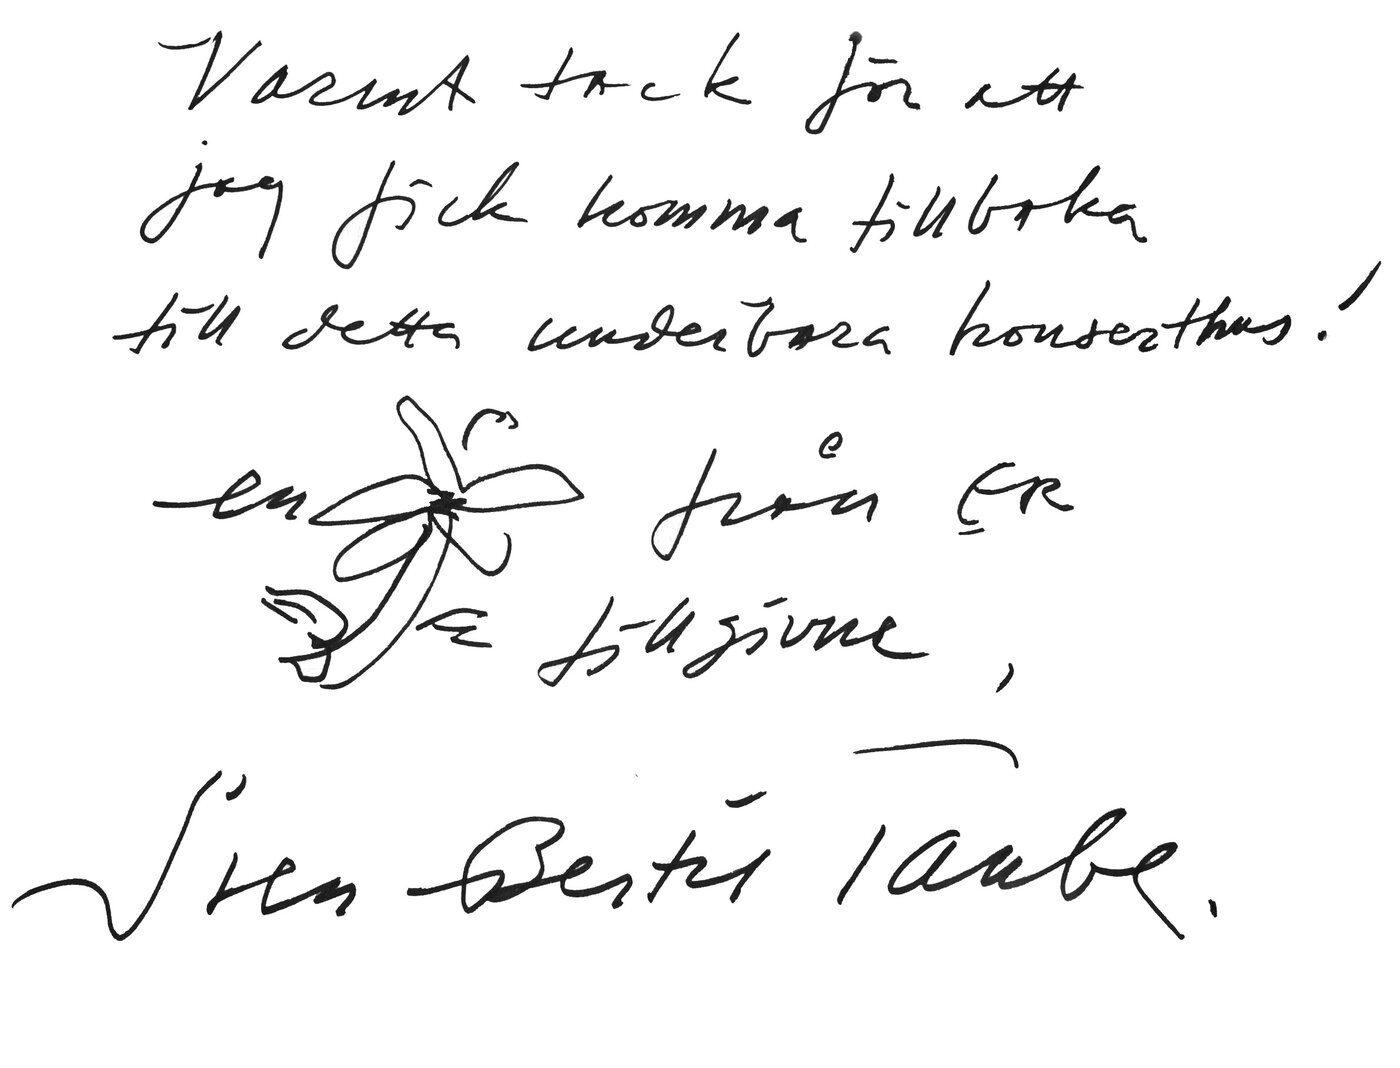 Varmt tack för att
jag fick komma tillbaka
till detta underbara konserthus!
en från ER
tillgivne,
Sven-Bertil Taube.